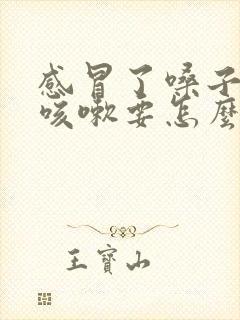 感冒了嗓子
咳嗽要怎麼
王寶山